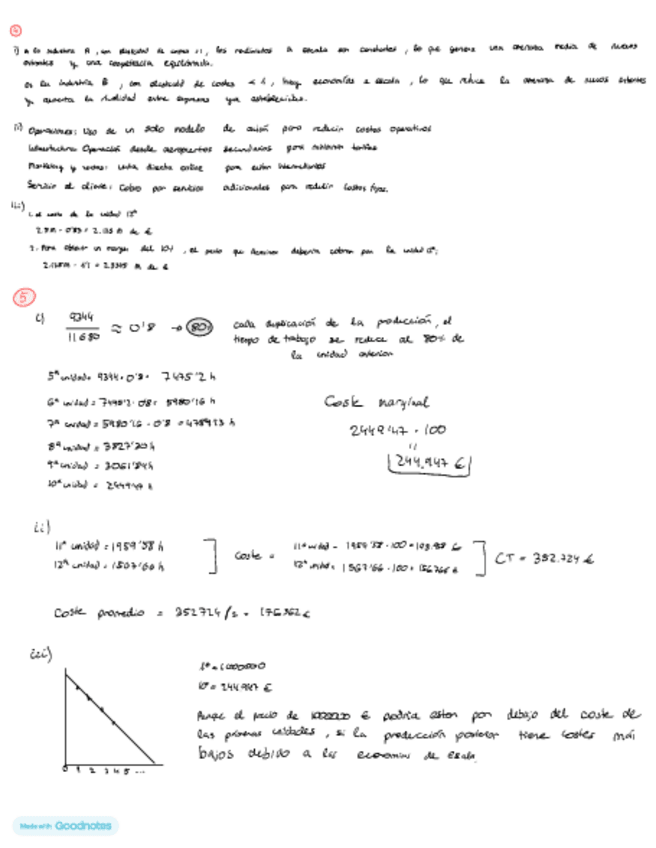 4
i) A la industria A, con elasticidad de costes = 1, los rendimientos a escala son constantes, lo que genera una amenaza media de nuevos
entrantes y una competencia equilibrada.
en la industria B, con elasticidad de costes < 1, hay economías a escala, lo que reduce la amenaza de nuevos entrantes
y aumenta la rivalidad entre empresas ya establecidas.
ii) Operaciones: Uso de un solo modelo de avión para reducir costos operativos
Infraestructura: Operación desde aeropuertos secundarios para tarifas
Marketing y ventas: Venta directa online para evitar intermediarios
Servicio al cliente: Cobro por servicios adicionales para reducir costos fijos.
iii)
1. el coste de la unidad 15ª
m de €
2. Para obtener un margen del 10%, el precio que debería cobrar por la unidad 15ª:
m de €
5
i) 9344 / 11680 ≈ 0'8 → 80% cada duplicación de la producción, el
tiempo de trabajo se reduce al 80% de
la unidad anterior
5ª unidad = 9344 · 0'8 = 7475'2 h
6ª unidad = · 0'8 = 5980'16 h
7ª unidad = 5980'16 · 0'8 = h
8ª unidad = h
9ª unidad = h
10ª unidad = h
Coste marginal
2449'47 · 100
=
244.947 €
ii)
11ª unidad = 1959'58 h
12ª unidad = 1567'66 h
Coste =
11ª unidad = 1959'58 · 100 = €
12ª unidad = 1567'66 · 100 = 156766 €
CT = 352.724 €
Coste promedio = 352724 / 2 = 176362 €
iii)
1ª =
10ª = 244.947 €
0 1 2 3 4 5 ...
Aunque el precio de € podría estar por debajo del coste de
las primeras unidades, si la producción posterior tiene costes más
bajos debido a las economías de escala.
Made with Goodnotes